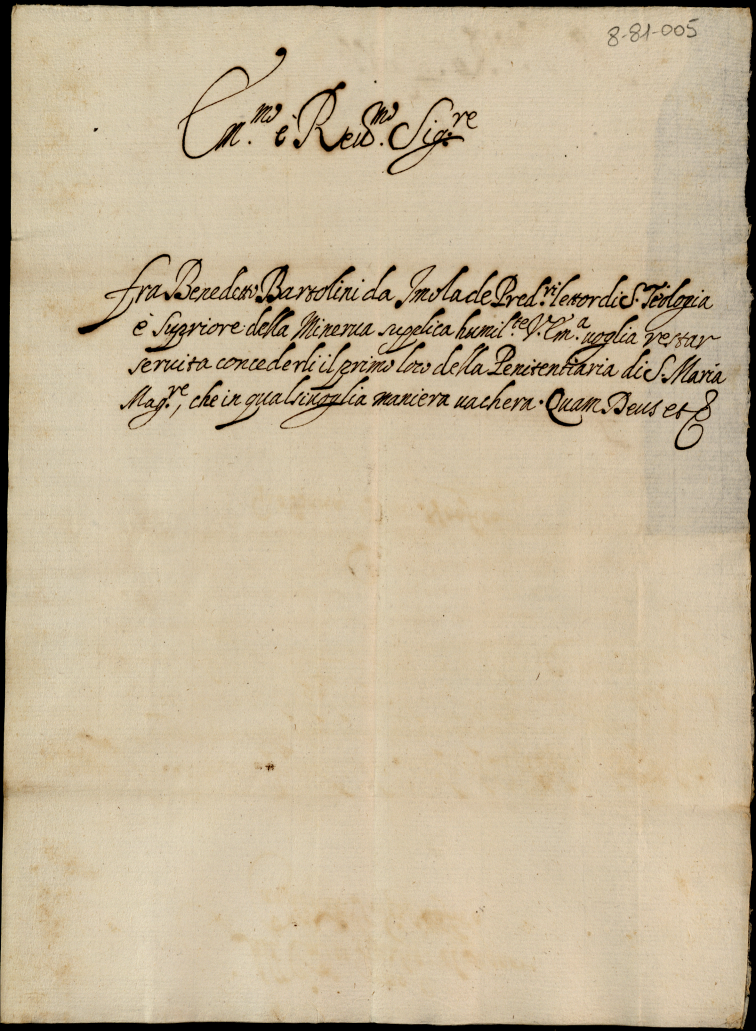 8-81-005
Em.mo è Reud.mo Sig.re
fra Benedetto Bartolini da Imola de Pred.ri lettor di S. Teologia
è Supriore della Minerua supplica humil.te V. Em.a uoglia restar
seruita concederli il primo loco della Penitentiaria di S. Maria
Mag.re, che in qualsiuoglia maniera uachera. Quam Deus et